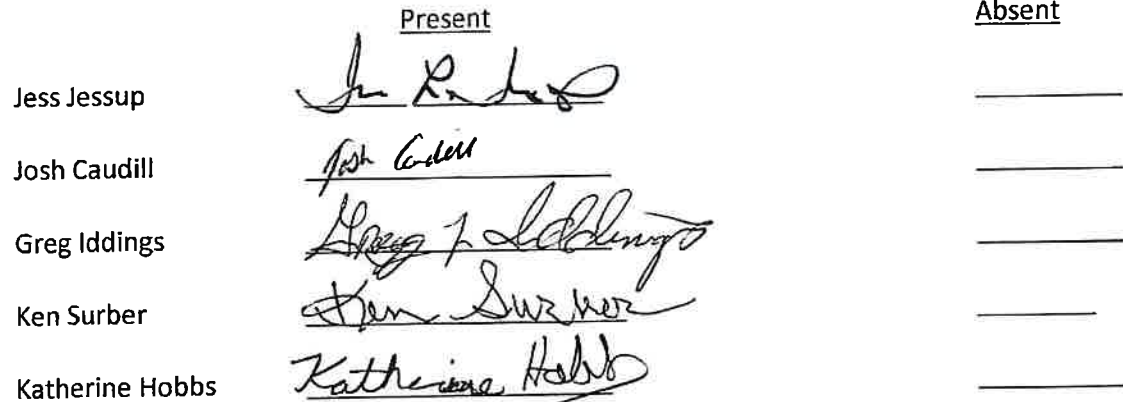 Present Absent
Jess Jessup
Josh Caudill Josh Caudill
Greg Iddings Greg Iddings
Ken Surber Ken Surber
Katherine Hobbs Katherine Hobbs